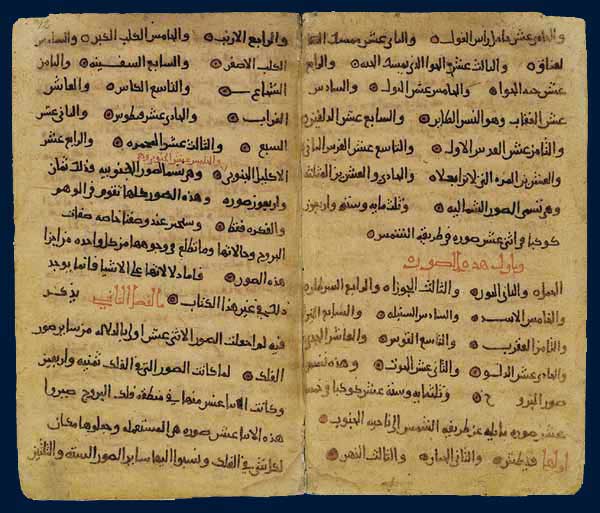 والحادي عشر حامل راس الغول والثاني عشر ممسك العنا
لعناق والثالث عشر الحوا التي يمسك الحية والرابع
عشر حية الحوا والخامس عشر والسادس
عشر العقاب وهو النسر الطاير والسابع عشر الدلفين
والثامن عشر الفرس الاول والتاسع عشر الفرس الثاني
والعشرين المره التي لا والحادي والعشرين المثلثة
وهي تسمى الصور الشمالية وثلثمايه وستة واربعون
كوكبا في اثني عشر صوره في طريقة الشمس
وباول هذه الصور
الحمل والثاني الثور والثالث الجوزا والرابع السرطان
والخامس الاسد والسادس السنبله والسابع
والثامن العقرب والتاسع القوس والعاشر الجدي
والحادي عشر الدلو والثاني عشر الحوت وهذه تسمى
صور البرو ج وثلثمايه وستة عشر كوكبا وخمس
عشر صوره مايله عن طريقة الشمس الى ناحية الجنوب
اولها قيطس والثاني الجبار والثالث النهر
والرابع الارنب والخامس الكلب الكبير والسادس
الكلب الاصغر والسابع السفينه والثامن
الشجاع والتاسع الكاس والعاشر
الغراب والحادي عشر قنطورس والثاني عشر
السبع والثالث عشر المجمره والرابع عشر
والخامس عشر الحوت
الاكليل الجنوبي وهي تسما الصور الجنوبيه فذلك ثمان
واربعون صوره وهذه الصور كلها تقوم في الوهم
والفكره فقط وسنخبر عند وصفنا خاصه صفات
البروج وحالاتها وما تطلع في وجوهها من كل واحده من اجزا
هذه الصور فاما دلالاتها على الاشيا فانما يوجد
ذلك في غير هذا الكتاب الفصل الثاني يذكر
فيه لم اجعلت الصور الاثني عشر اولى بالدلاله من ساير صور
الفلك لما كانت الصور التي في الفلك ثمنيه واربعين
وكانت الاثنا عشر منها في منطقة فلك البروج صيروا
هذه الاثنا عشر صوره هي المستعمله وجعلوها مكان
لكل شي في الفلك ونسبوا اليها ساير الصور السته والثلثين